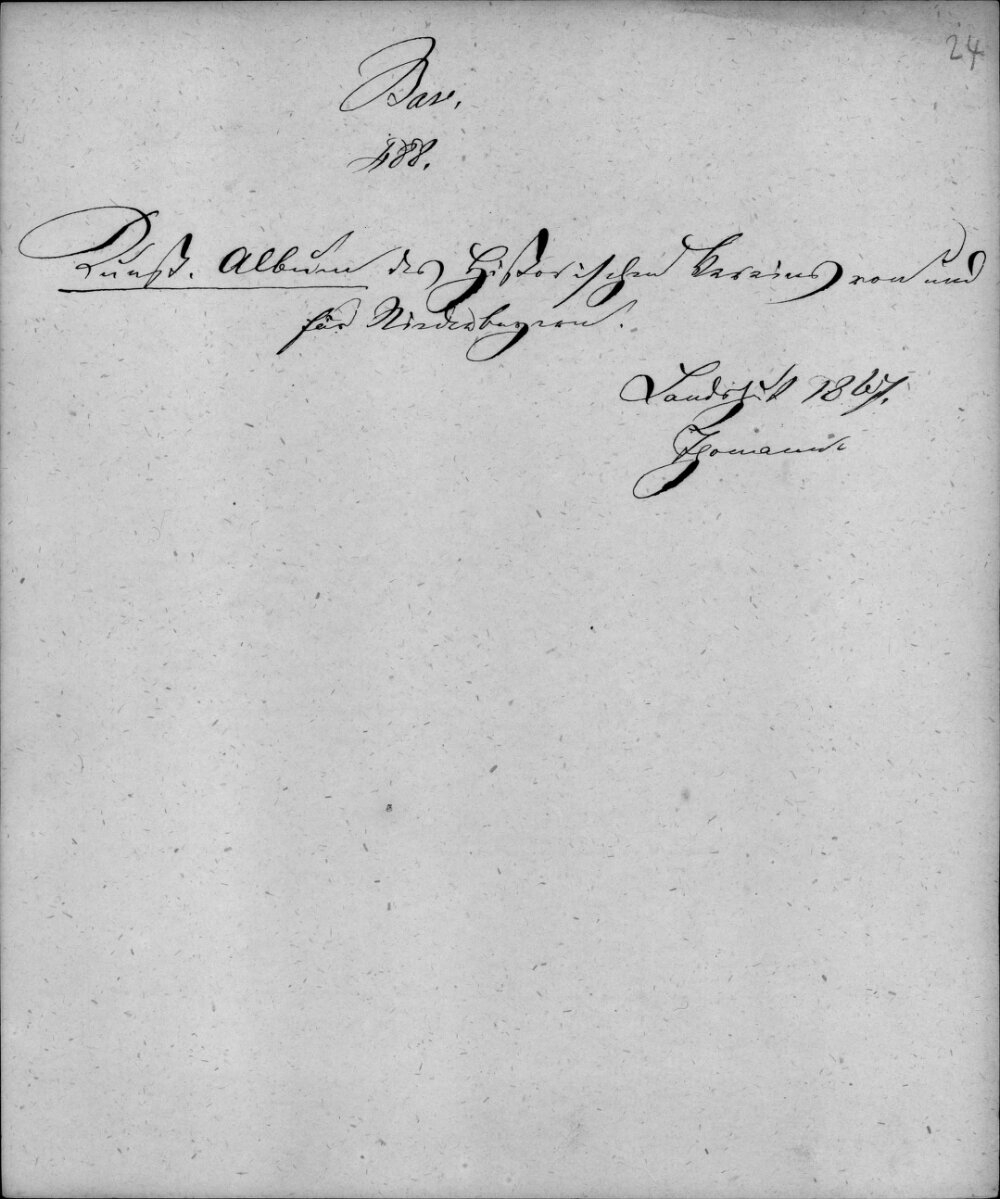 24
Bav.
488.
Kunst-Album des Historischen Vereins von und
für Niederbayern.
Landshut 1867.
Thomann